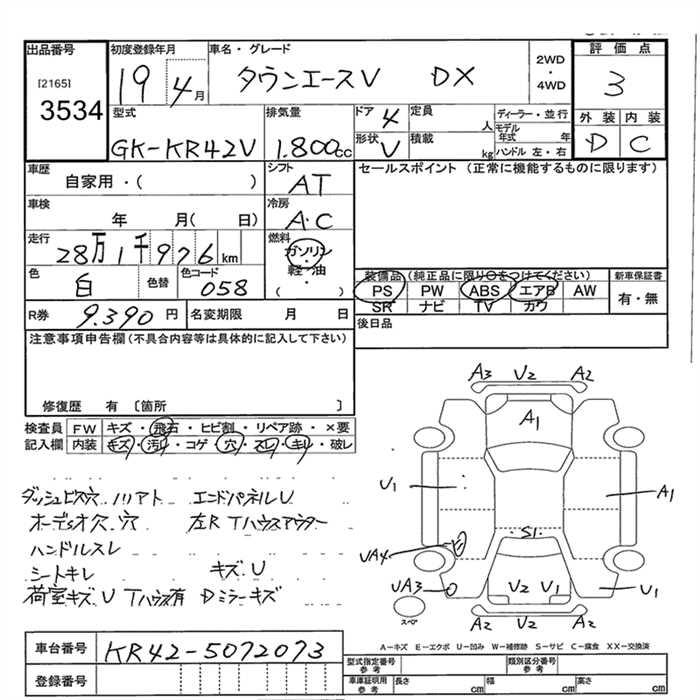 出品番号 初度登録年月 車名・グレード 2WD・4WD 評価点
[2165] 19 4月 タウンエースV DX 3
3534
型式 排気量 ドア 4 定員 人 ディーラー・並行 外装 内装
GK-KR42V 1.800cc 形状 V 積載 kg モデル年式 年 ハンドル 左・右 D C
車歴 自家用・( ) シフト AT セールスポイント (正常に機能するものに限ります)
車検 年 月( 日) 冷房 A・C
走行 28万1千976km 燃料 ガソリン・軽油 ( )
色 白 色替 色コード 058
装備品(純正品に限り○をつけてください) 新車保証書
PS PW ABS エアB AW 有・無
SR ナビ TV カワ
R券 9.390円 名変期限 月 日 後日品
注意事項申告欄(不具合内容等は具体的に記入して下さい)
修復歴 有 〔箇所 〕
検査員記入欄 FW キズ・飛石・ヒビ割・リペア跡・×要
内装 キズ・汚れ・コゲ・穴・スレ・キレ・破レ
A3 U2 A2
A1
U1 A1
S1
UA4
UA3 U2 U1 U1
スペア A2 U2 A2
ダッシュビス穴 ノリアト エンドパネルU
オーディオ穴 穴 左R Tハウスアウター
ハンドルスレ
シートキレ キズ U
荷室キズ U Tハウス有 Dミラーキズ
A-キズ E-エクボ U-凹み W-補修跡 S-サビ C-腐食 XX-交換済
車台番号 KR42-5072073
登録番号
型式指定番号 参考 類別区分番号 参考
車庫証明用 参考 長さ cm 幅 cm 高さ cm